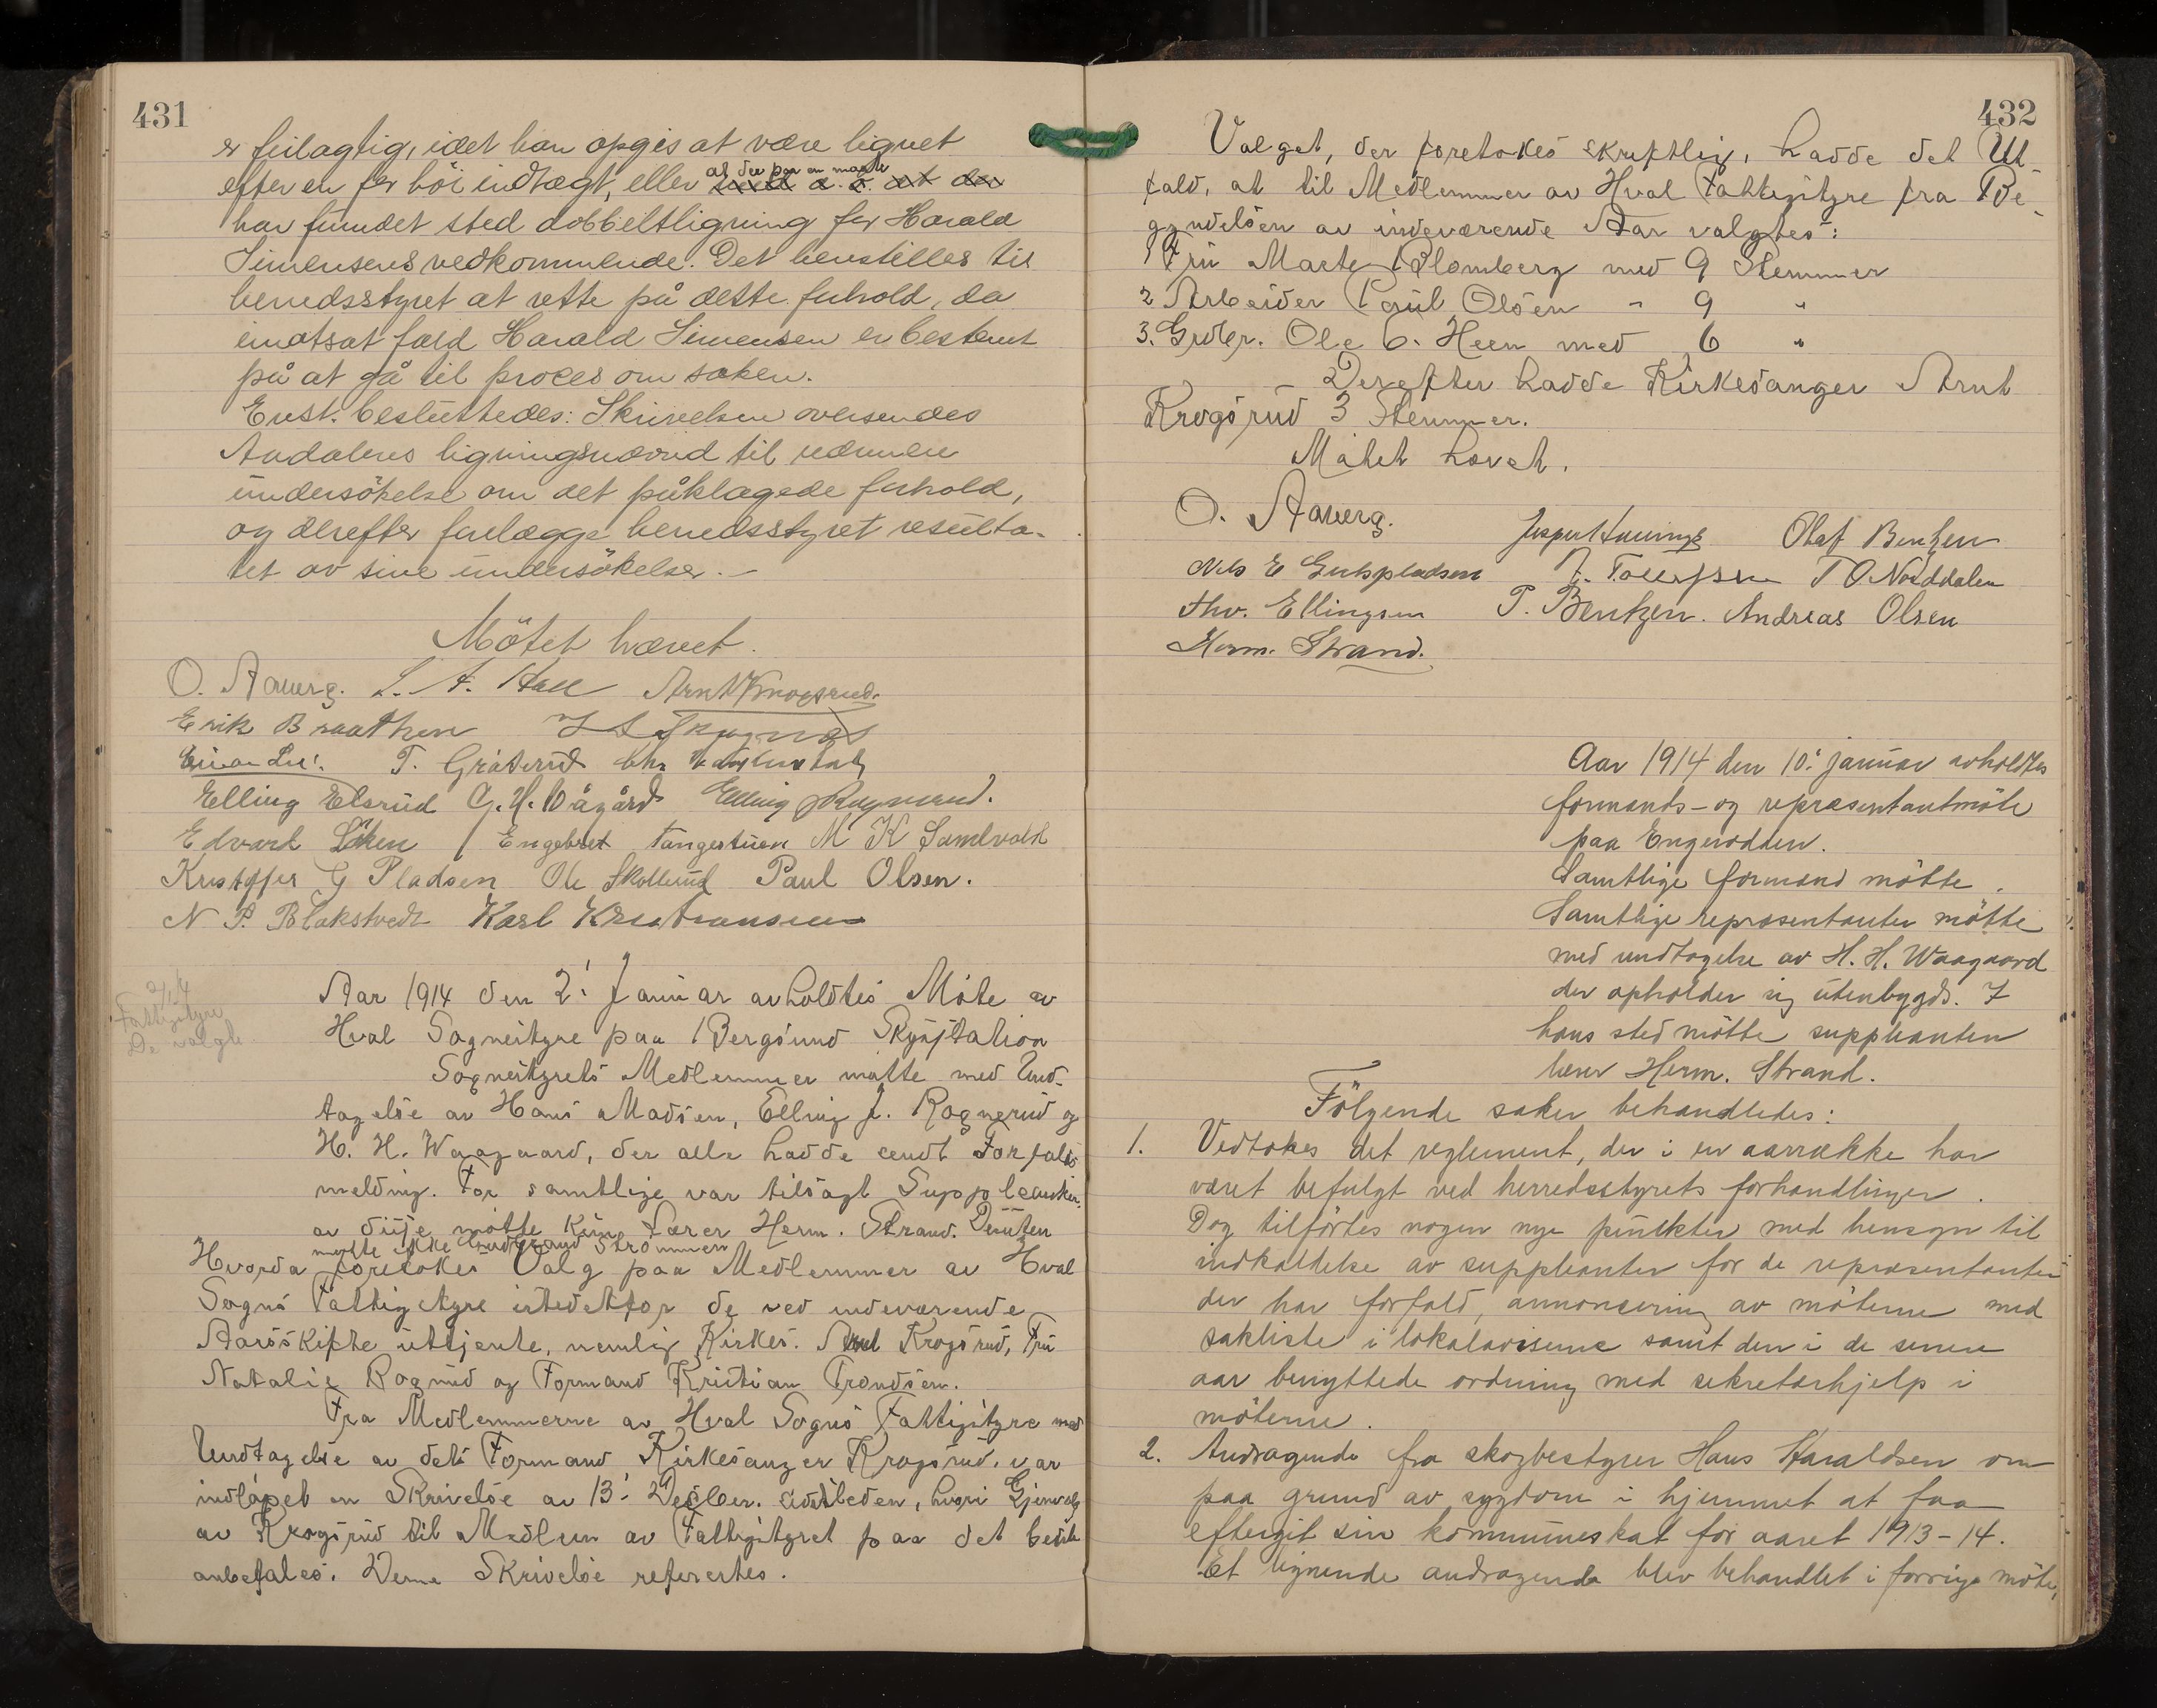 431
er feilagtig, idet han opgis at være lignet
efter en for höi indtægt, eller at der paa en maate
har fundet sted dobbeltligning for Harald
Simensens vedkommende. Det henstilles til
herredsstyret at rette på dette forhold, da
imotsat fald Harald Simensen er bestemt
på at gå til proces om saken.
Enst. besluttedes: Skrivelsen oversendes
Aadalens ligningsnævnd til nærmere
undersökelse om det påklagede forhold,
og derefter forelægge herredsstyret resulta-
tet av sine undersökelser.-
Mötet hævet.
O. Aaverg. L. A. Hall Arnt Krogsrud.
Erik Braathen
Einar Lie. T. Gråterud
Elling Elsrud G. H. Vågård Elling Rognerud.
Edvard Löken Engebret Tangestuen M K Sandvold
Kristoffer G Pladsen Ole Skollerud Paul Olsen.
N. P. Blakstvedt Karl Kristiansen
2/1 14
Fattigstyre
De valgte
Aar 1914 den 2' Januar avholdtes Möte av
Hval Sognestyre paa Bergsund Skysstation
Sognestyrets Medlemmer mötte med Und-
tagelse av Hans Madsen, Elling J. Rognerud og
H. H. Waagaard, der alle hadde sendt Forfalds
melding. For samtlige var tilsagt Suppleanter,
av disse mötte kun Lærer Herm. Strand. Desuten
mötte ikke Gudbrand Strømmen
Hvorda foretokes Valg paa Medlemmer av Hval
Sogns Fattigstyre istedetfor de ved indeværende
Aarsskifte uttjente, nemlig Kirkes. Arnt Krogsrud, Fru
Natalie Rognrud og Formand Kristian Trondsen.
Fra Medlemmerne av Hval Sogns Fattigstyre med
Undtagelse av dets Formand Kirkesanger Krogsrud, var
indløpet en Skrivelse av 13' Decbr. sidstleden, hvori Gjenvalg
av Krogsrud til Medlem av Fattigstyret paa det bedste
anbefales. Denne Skrivelse refererte​s.
432
Valget, der foretokes skriftlig, hadde det Ut-
fald, at til Medlemmer av Hval Fattigstyre fra Be-
gyndelsen av indeværende Aar valgtes:
1 Fru Marte Blomberg med 9 Stemmer
2 Arbeider Paul Olsen - 9 "
3. Grdbr. Ole O. Heen med 6 "
Derefter hadde Kirkesanger Arnt
Krogsrud 3 Stemmer.
Mötet hævet.
O. Aaverg.
Olaf Bentzen
Nils E Gulspladsen A. Tollefsen T O Norddalen
Thv. Ellingsen P. Bentzen. Andreas Olsen
Herm. Strand.
Aar 1914 den 10' januar avholdtes
formands- og repræsentantmöte
paa Engerodden.
Samtlige formænd mötte.
Samtlige repræsentanter mötte
med undtagelse av H. H. Waagaard
der opholder sig utenbygds. I
hans sted mötte suppleanten
lærer Herm. Strand.
Fölgende saker behandledes:
1. Vedtokes det reglement, der i en aarrække har
været befulgt ved herredsstyrets forhandlinger.
Dog tilförtes nogen nye punkter med hensyn til
indkaldelse av suppleanter for de repræsentanter
der har forfald, annoncering av möterne med
sakliste i lokalaviserne samt den i de senere
aar benyttede ordning med sekretærhjelp i
möterne.
2. Andragende fra skogbestyrer Hans Haraldsen om
paa grund av sygdom i hjemmet at faa
eftergit sin kommuneskat for aaret 1913-14.
Et lignende andragende blev behandlet i forrige möte,